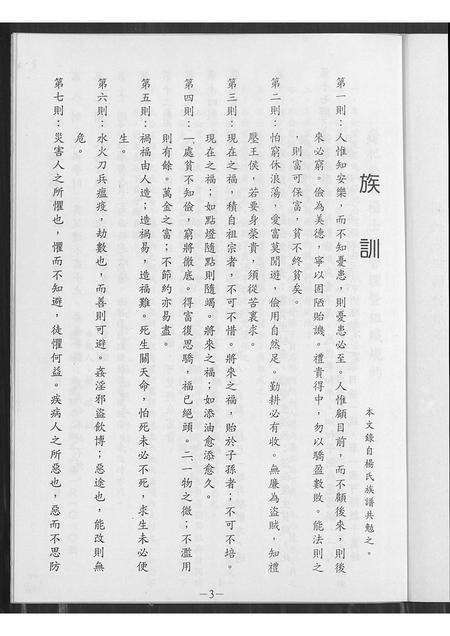 族訓
本文錄自楊氏族譜共勉之。
第一則：人惟知安樂，而不知憂患，則憂患必至。人惟顧目前，而不顧後來，則後
來必窮。儉為美德，寧以固陋貽譏。禮貴得中，勿以驕盈數敗。能法則之
，則富可保富，貧不終貧矣。
第二則：怕窮休浪蕩，愛富莫閒遊，儉用自然足。勤耕必有收。無廉為盜賊，知禮
壓王侯，若要身榮貴，須從苦裏求。
第三則：現在之福，積自祖宗者，不可不惜。將來之福，貽於子孫者；不可不培。
現在之福；如點燈隨點則隨竭。將來之福；如添油愈添愈久。
第四則：一處貧不知儉，窮將徹底。得富復思驕，福已絕頭。二、一物之微；不濫用
則有餘。萬金之富；不節約亦易盡。
第五則：禍福由人造；造禍易，造福難。死生關天命，怕死未必不死，求生未必便
生。
第六則：水火刀兵瘟疫，劫數也，而善則可避。姦淫邪盜飲博；惡途也，能改則無
危。
第七則：災害人之所懼也，懼而不知避，徒懼何益。疾病人之所惡也，惡而不思防
—3—